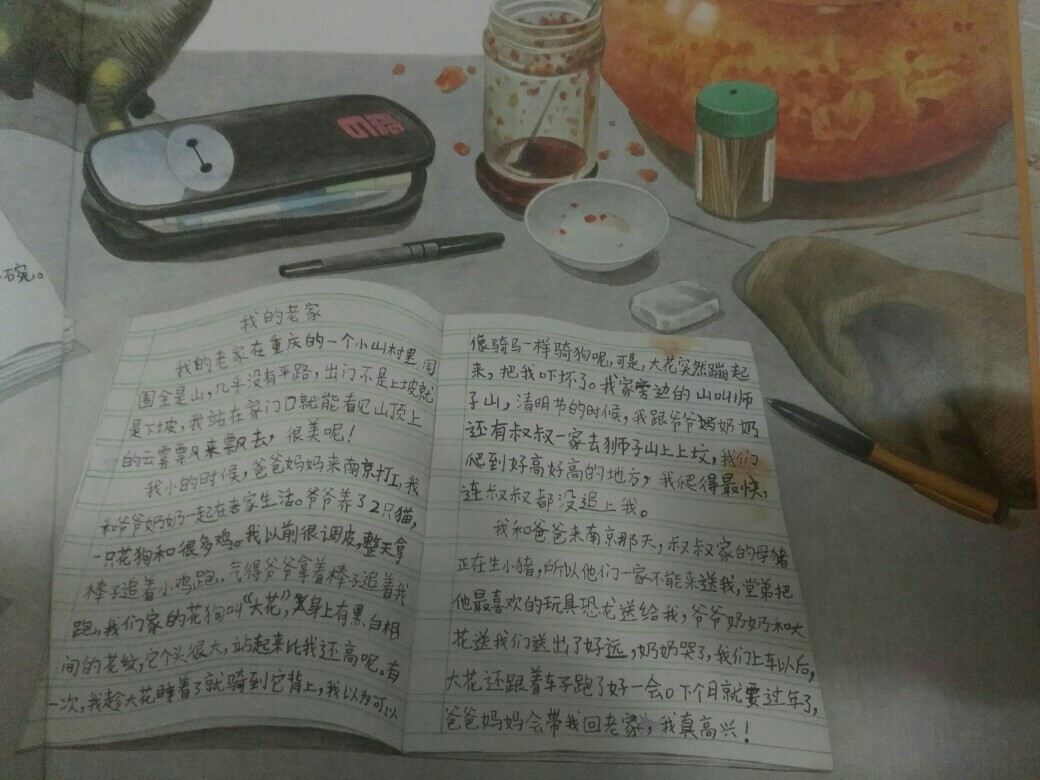 碗。
我的老家
我的老家在重庆的一个小山村里,周
围全是山,几乎没有平路,出门不是上坡就
是下坡,我站在家门口就能看见山顶上
的云雾飘来飘去,很美呢!
我小的时候,爸爸妈妈来南京打工,我
和爷爷奶奶一起在老家生活。爷爷养了2只猫,
一只花狗和很多鸡。我以前很调皮,整天拿
棒子追着小鸡跑,气得爷爷拿着棒子追着我
跑,我们家的花狗叫“大花”,身上有黑白相
间的花纹,它个头很大,站起来比我还高呢。有
一次,我趁大花睡着了就骑到它背上,我以为可以
像骑马一样骑狗呢,可是,大花突然蹦起
来,把我吓坏了。我家旁边的山叫狮
子山,清明节的时候,我跟爷爷奶奶
还有叔叔一家去狮子山上上坟,我们
爬到好高好高的地方,我爬得最快,
连叔叔都没追上我。
我和爸爸来南京那天,叔叔家的母猪
正在生小猪,所以他们一家不能来送我,堂弟把
他最喜欢的玩具恐龙送给我,爷爷奶奶和大
花送我们送出了好远,奶奶哭了,我们上车以后,
大花还跟着车子跑了好一会。下个月就要过年了,
爸爸妈妈会带我回老家,我真高兴!